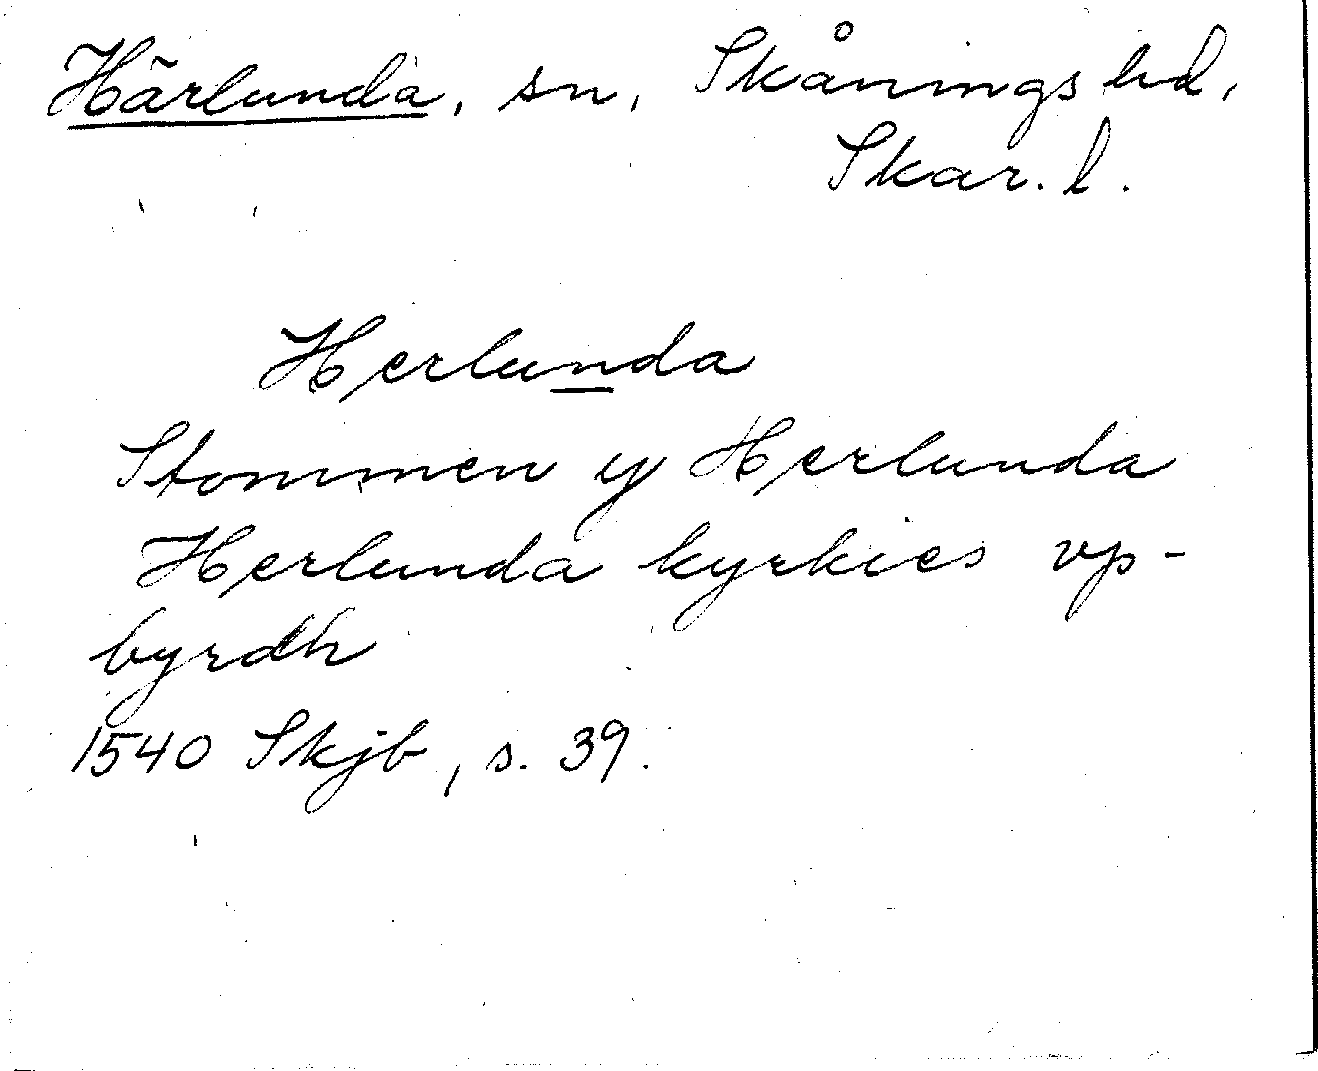 Härlunda, sn, Skånings hd,
Skar. l.
Herlunda
Stommen y Herlunda
Herlunda kyrkies vp-
byrdh
1540 Skjb, s. 39.